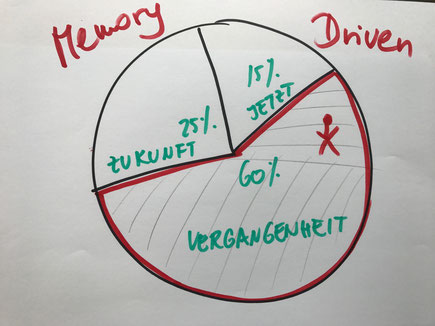 Memory Driven
15%
JETZT
25%
ZUKUNFT
60%
VERGANGENHEIT